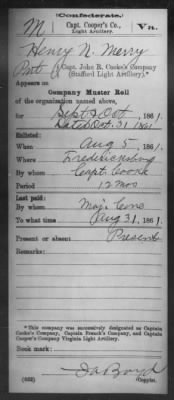 (Confederate.)
M Capt. Cooper's Co., Va.
Light Artillery.
Henry N. Merry
Pvt Capt. John B. Cooke's Company
(Stafford Light Artillery).*
Appears on
Company Muster Roll
of the organization named above,
for Sept & Oct, 1861.
Dated Oct. 31 1861
Enlisted:
When Aug 5, 1861.
Where Fredericksburg
By whom Capt. Cooke
Period 12 mos
Last paid:
By whom Maj. Cone
To what time Aug 31, 1861.
Present or absent Present
Remarks:
*This company was successively designated as Captain
Cooke's Company, Captain French's Company, and Captain
Cooper's Company Virginia Light Artillery.
Book mark:
(642) Copyist.